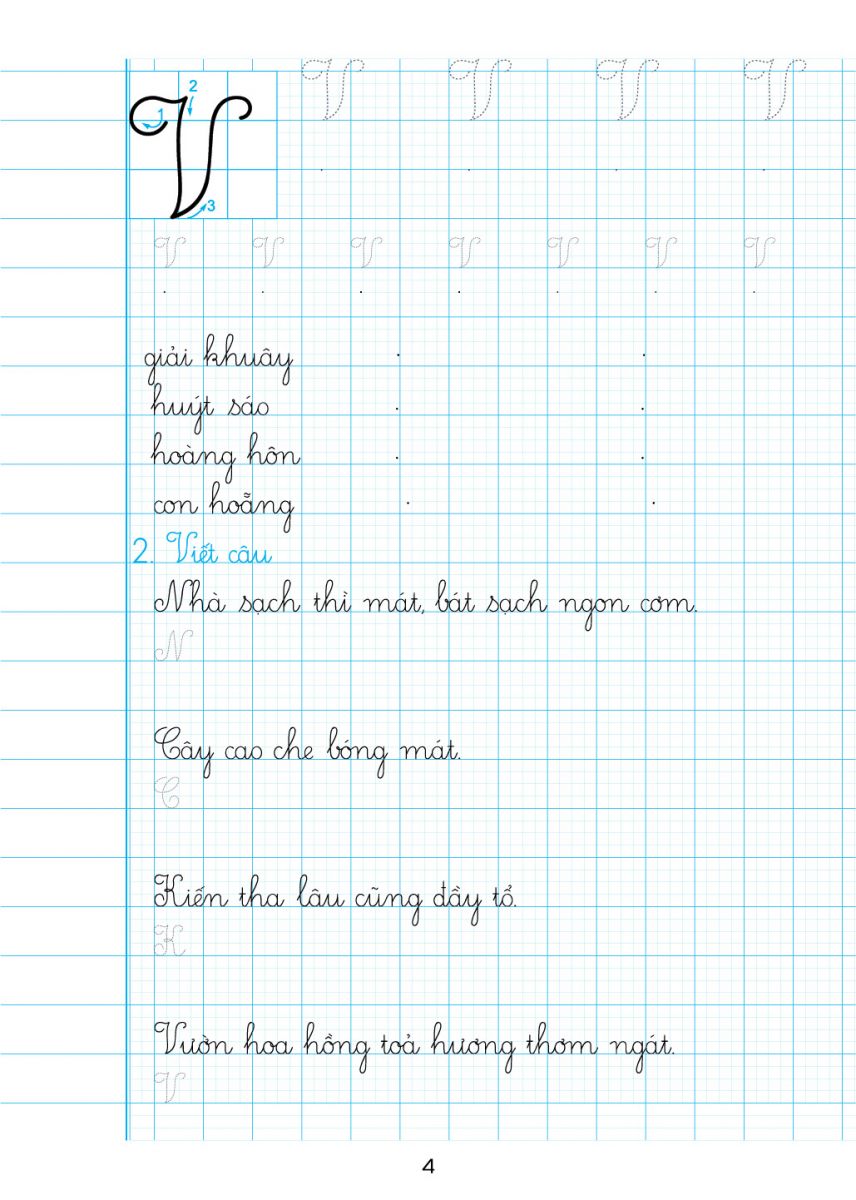 V
1
2
3
V V V V
V V V V V V V
giải khuây
huýt sáo
hoàng hôn
con hoẵng
2. Viết câu
Nhà sạch thì mát, bát sạch ngon cơm.
N
Cây cao che bóng mát.
C
Kiến tha lâu cũng đầy tổ.
K
Vườn hoa hồng toả hương thơm ngát.
V
4